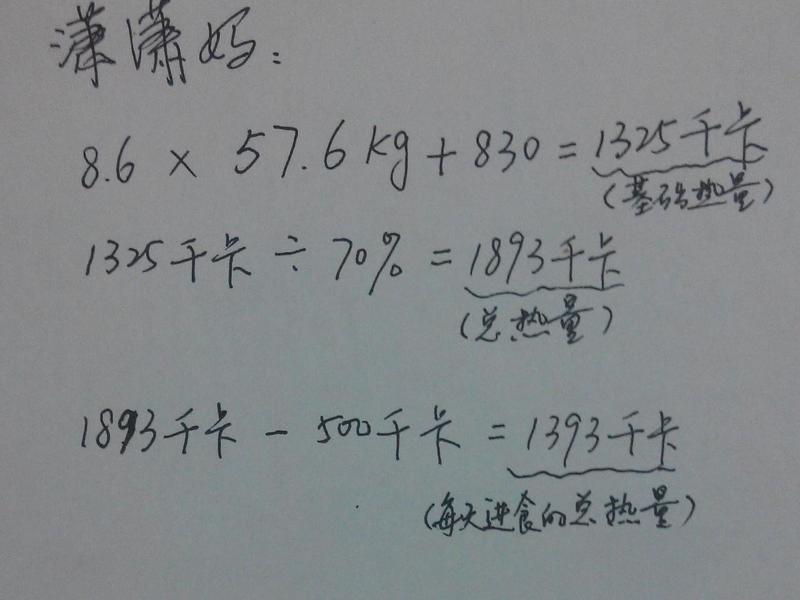 潇潇妈：
8.6 × 57.6kg + 830 = 1325千卡
(基础热量)
1325千卡 ÷ 70% = 1893千卡
(总热量)
1893千卡 - 500千卡 = 1393千卡
(每天进食的总热量)